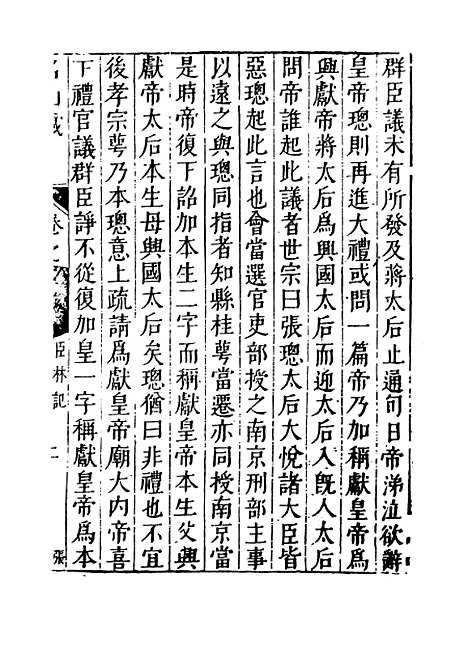 群臣議未有所發及蔣太后止通旬日帝涕泣欲辭
皇帝璁則再進大禮或問一篇帝乃加稱獻皇帝爲
興獻帝蔣太后爲興國太后而迎太后入旣入太后
問帝誰起此議者世宗曰張璁太后大悅諸大臣皆
惡璁起此言也會當選官吏部授之南京刑部主事
以遠之與璁同指者知縣桂蕚當遷亦同授南京當
是時帝復下詔加本生二字而稱獻皇帝本生父興
獻帝太后本生母興國太后矣璁猶曰非禮也不宜
後孝宗蕚乃本璁意上疏請爲獻皇帝廟大内帝喜
下禮官議群臣諍不從復加皇一字稱獻皇帝爲本
名山藏
卷之
臣林記
二
張